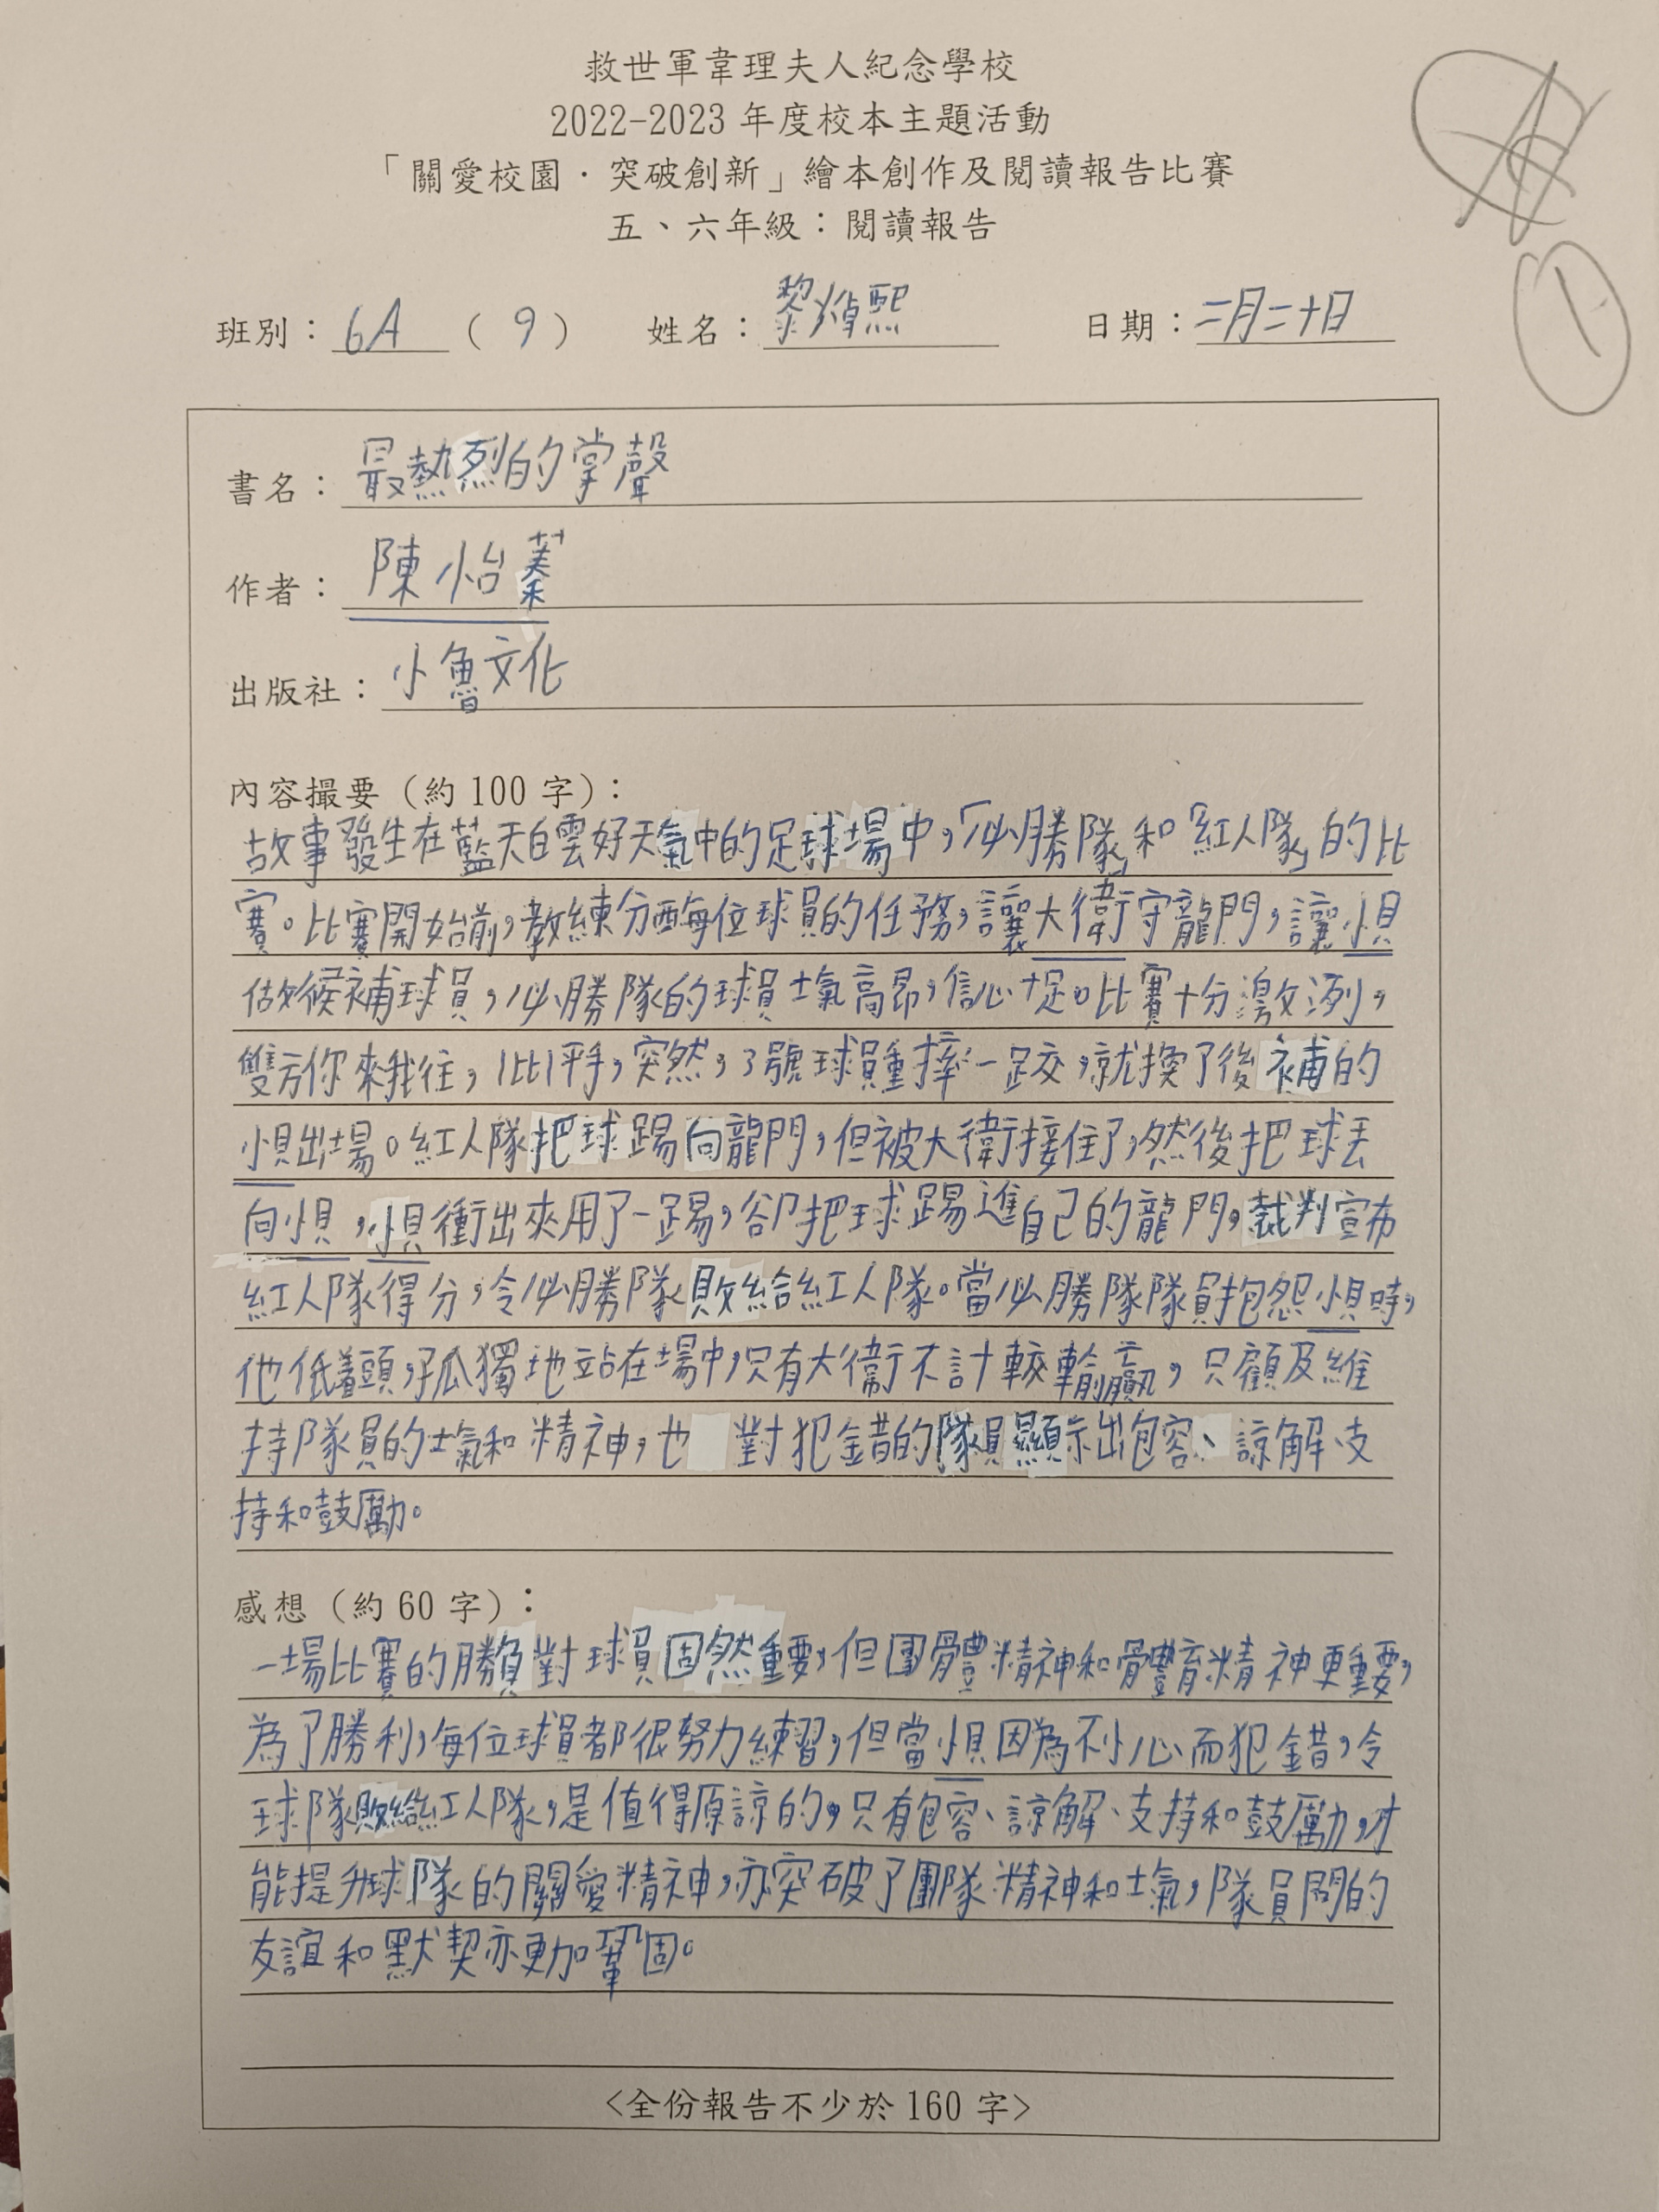 救世軍韋理夫人紀念學校
2022-2023 年度校本主題活動
「關愛校園·突破創新」繪本創作及閱讀報告比賽
五、六年級：閱讀報告
班別：6A（9） 姓名：黎焯熙 日期：二月二十日
書名：最熱烈的掌聲
作者：陳怡蓁
出版社：小魯文化
內容撮要（約 100 字）：
故事發生在藍天白雲好天氣中的足球場中，「必勝隊」和「紅人隊」的比
賽。比賽開始前，教練分配每位球員的任務，讓大衛守龍門，讓小貝
做候補球員，必勝隊的球員士氣高昂，信心十足。比賽十分激烈，
雙方你來我往，1比1平手，突然，3號球員重摔一跤，就換了後補的
小貝出場。紅人隊把球踢向龍門，但被大衛接住了，然後把球丟
向小貝，小貝衝出來用了一踢，卻把球踢進自己的龍門，裁判宣布
紅人隊得分，令必勝隊敗給紅人隊。當必勝隊隊員抱怨小貝時，
他低著頭，孤獨地站在場中，只有大衛不計較輸贏，只顧及維
持隊員的士氣和精神，也對犯錯的隊員顯示出包容、諒解、支
持和鼓勵。
感想（約 60 字）：
一場比賽的勝負對球員固然重要，但團體精神和體育精神更重要，
為了勝利，每位球員都很努力練習，但當小貝因為不小心而犯錯，令
球隊敗給紅人隊，是值得原諒的。只有包容、諒解、支持和鼓勵，才
能提升球隊的關愛精神，亦突破了團隊精神和士氣，隊員間的
友誼和默契亦更加鞏固。
<全份報告不少於 160 字>